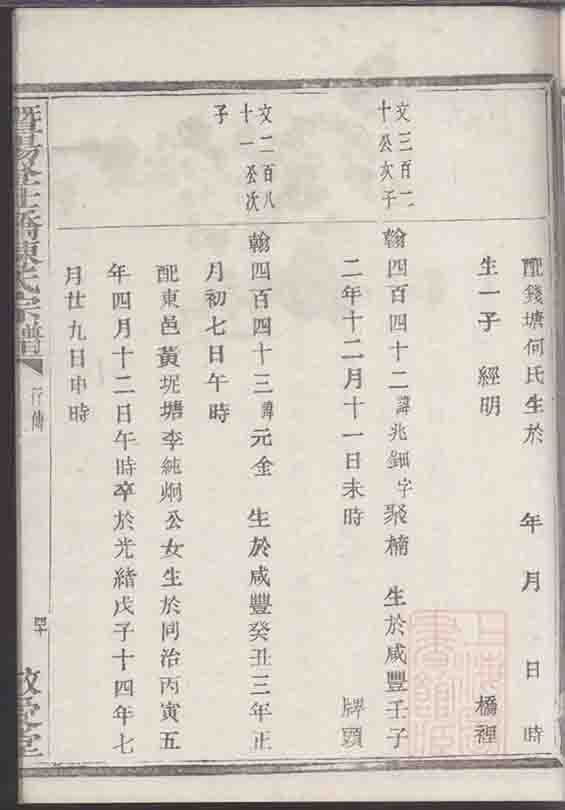 配錢塘何氏生於 年 月 日 時
生一子 經明 橋裡
文三百二
十公次子
翰四百四十二諱兆鈿字聚楠 生於咸豐壬子
二年十二月十一日未時 牌頭
文二百八
十一公次
子
翰四百四十三諱元金 生於咸豐癸丑三年正
月初七日午時
配東邑黃坭塘李純炯公女生於同治丙寅五
年四月十二日午時卒於光緒戊子十四年七
月廿九日申時
陳氏宗譜
行傳
四十